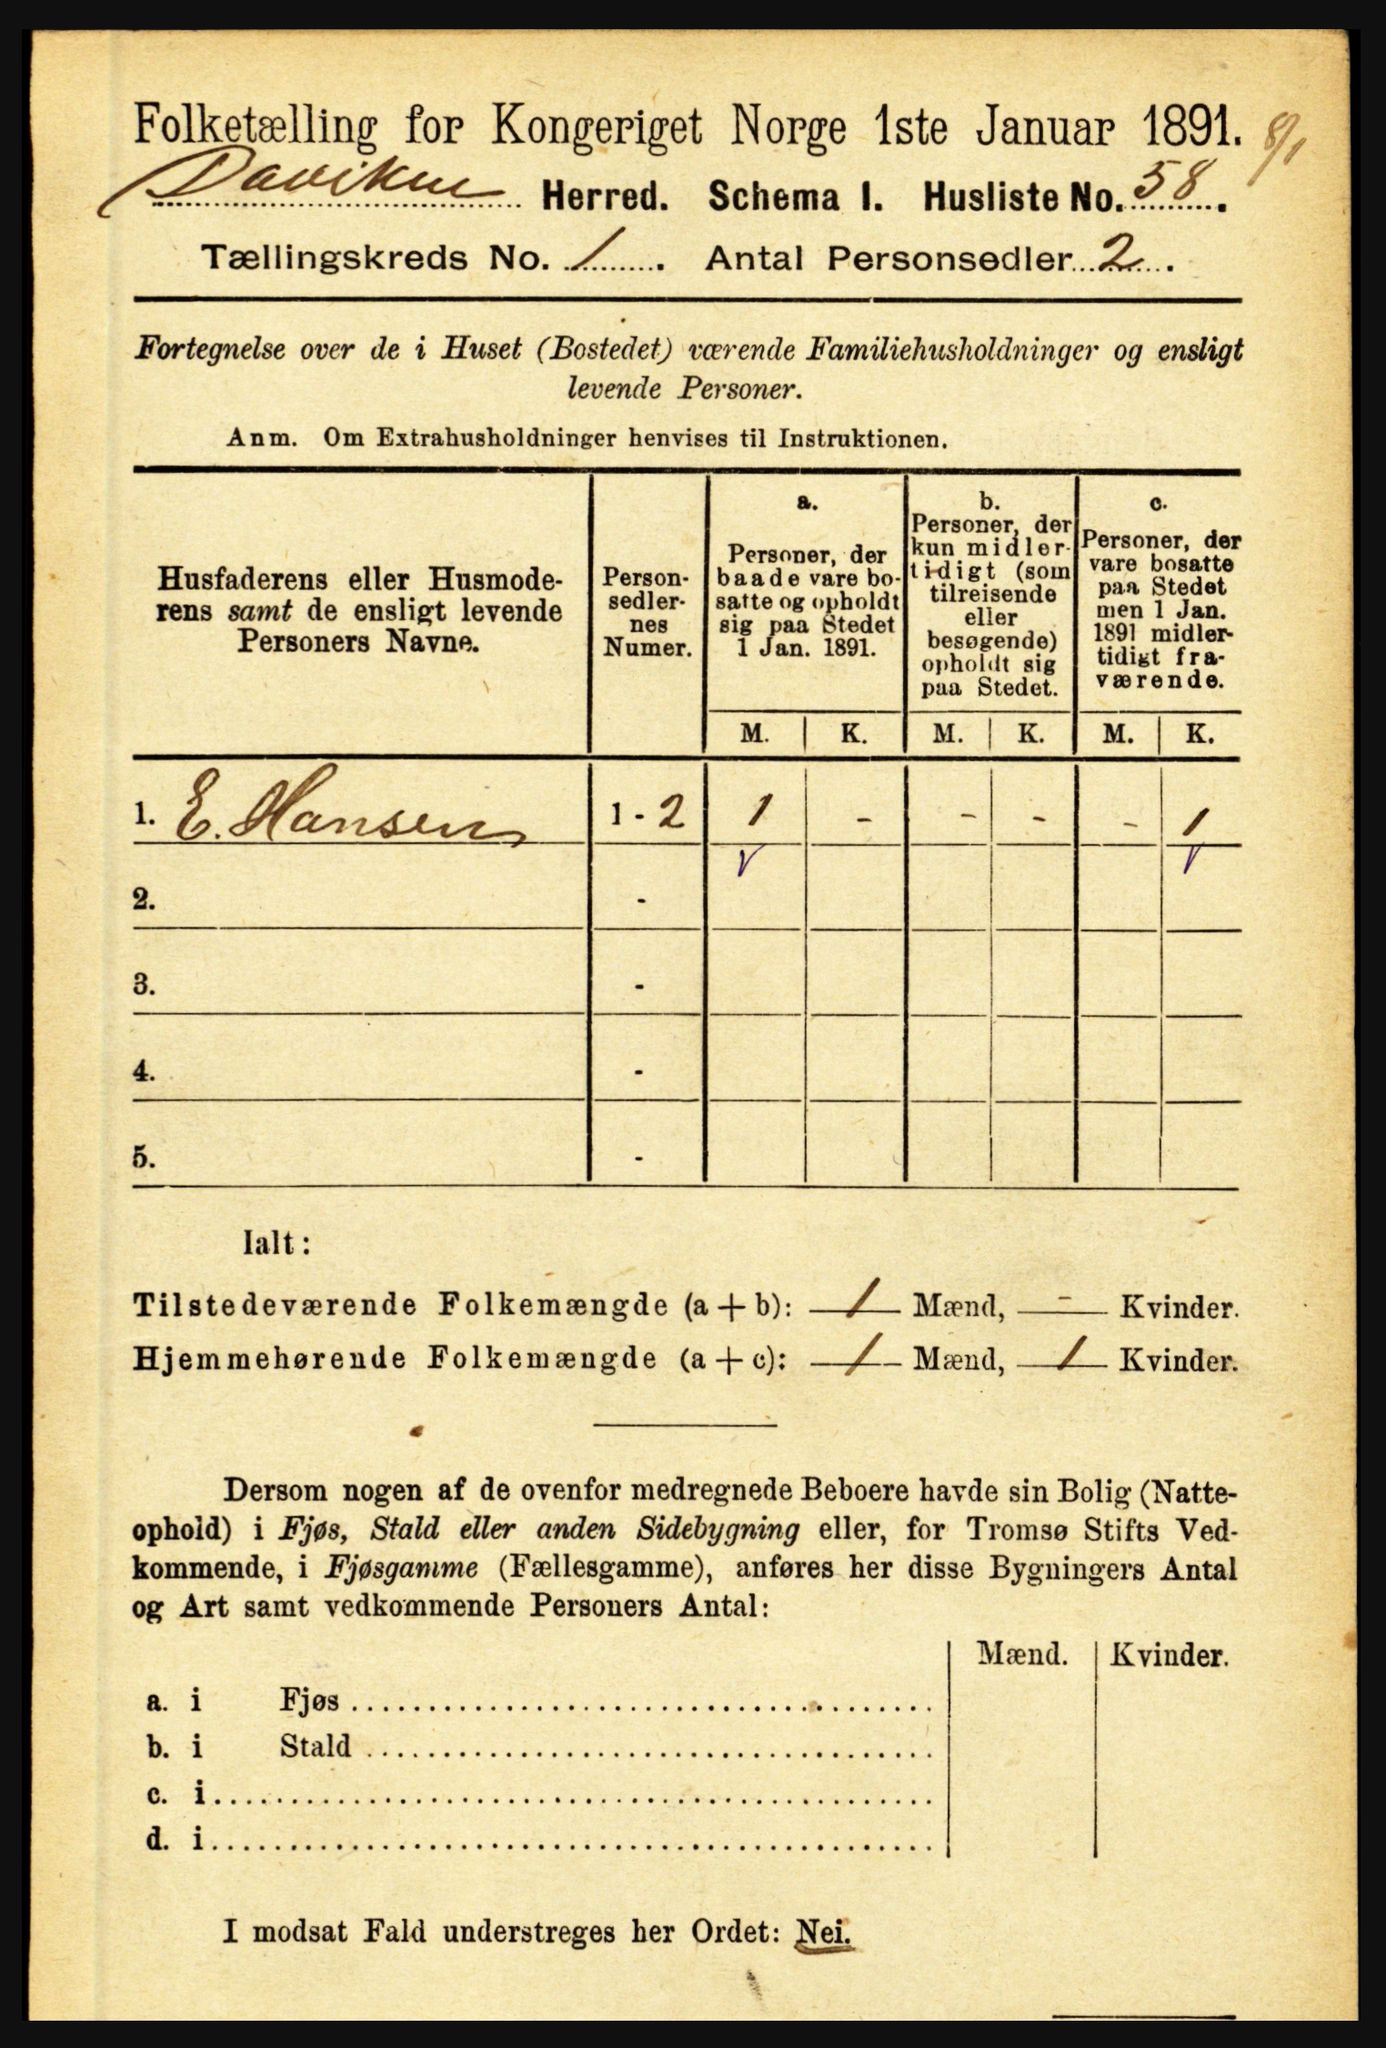 Folketælling for Kongeriget Norge 1ste Januar 1891. 8/1
Daviken Herred. Schema I. Husliste No. 58.
Tællingskreds No. 1. Antal Personsedler 2.
Fortegnelse over de i Huset (Bostedet) værende Familiehusholdninger og ensligt
levende Personer.
Anm. Om Extrahusholdninger henvises til Instruktionen.
Husfaderens eller Husmode-
rens samt de ensligt levende
Personers Navne.
Person-
sedler-
nes
Numer.
a.
Personer, der
baade vare bo-
satte og opholdt
sig paa Stedet
1 Jan. 1891.
b.
Personer, der
kun midler-
tidigt (som
tilreisende
eller
besøgende)
opholdt sig
paa Stedet.
c.
Personer, der
vare bosatte
paa Stedet
men 1 Jan.
1891 midler-
tidigt fra-
værende.
M. K. M. K. M. K.
1. E. Hansen 1 - 2 1 - - - - 1
v v
2. -
3. -
4. -
5. -
Ialt:
Tilstedeværende Folkemængde (a + b): 1 Mænd, - Kvinder.
Hjemmehørende Folkemængde (a + c): 1 Mænd, 1 Kvinder.
Dersom nogen af de ovenfor medregnede Beboere havde sin Bolig (Natte-
ophold) i Fjøs, Stald eller anden Sidebygning eller, for Tromsø Stifts Ved-
kommende, i Fjøsgamme (Fællesgamme), anføres her disse Bygningers Antal
og Art samt vedkommende Personers Antal:
Mænd. Kvinder.
a. i Fjøs
b. i Stald
c. i
d. i
I modsat Fald understreges her Ordet: Nei.